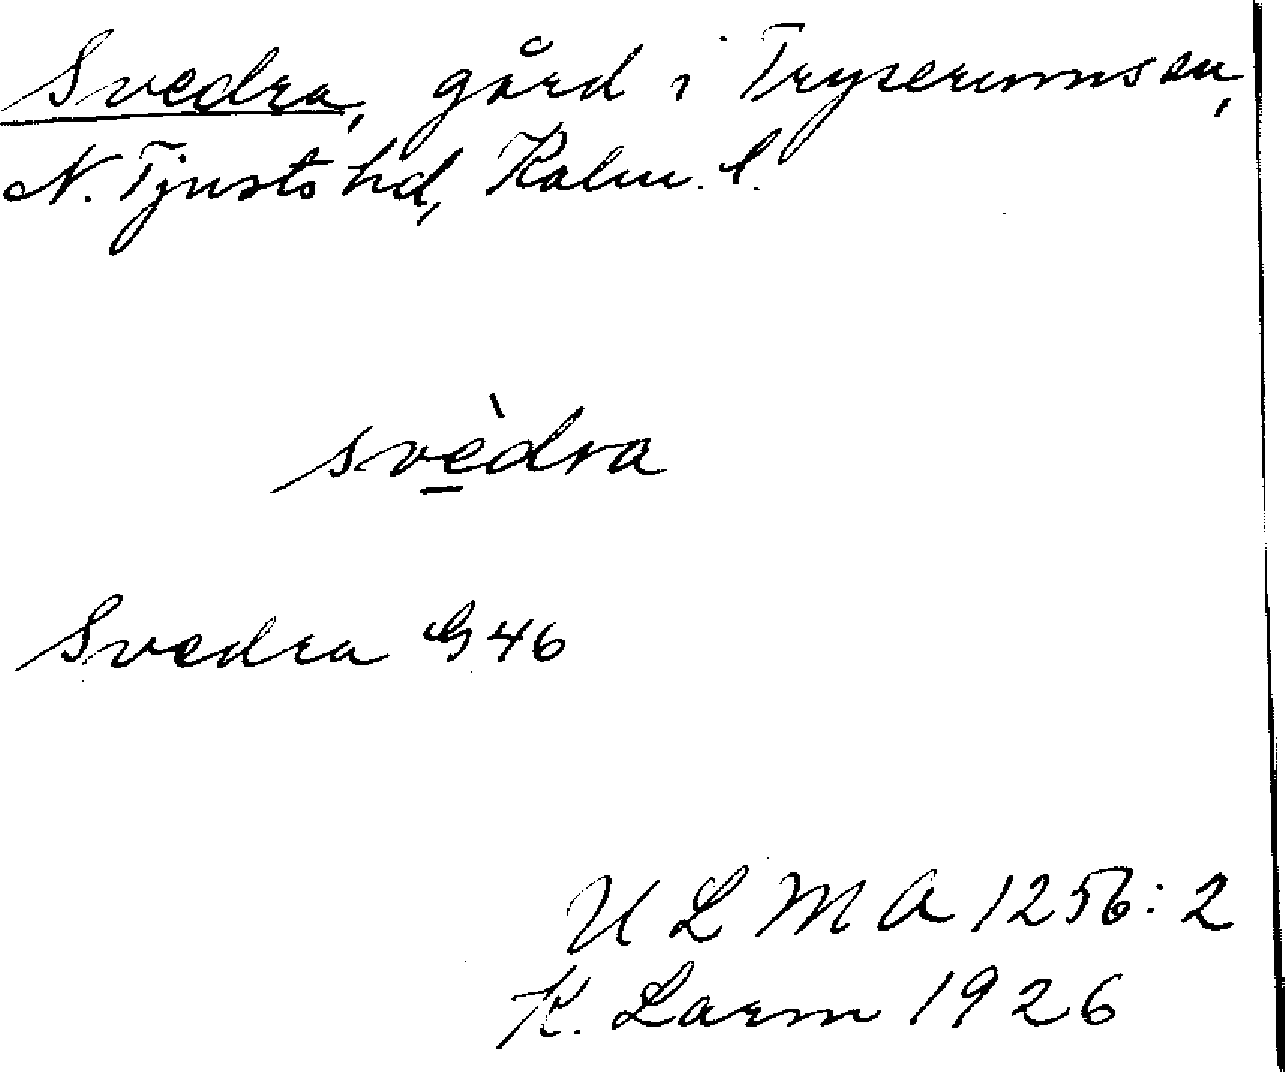 Svedra, gård i Tryserums sn,
N. Tjusts hd, Kalm. l.
svèdra
Svedra G 46
ULMA 1256:2
K. Larm 1926